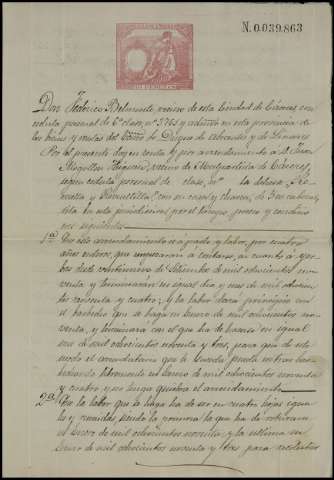 N.0.039.863
Don Federico Belmonte vecino de esta Ciudad de Cáceres, con
cédula personal de 6ª clase, nº 3765 y administ en esta provincia de
los bienes y rentas del Duque de Abrantes y de Linares
Por el presente doy en renta y por arrendamiento a D. Juan
Mogollon vecino de Casar de Cáceres,
según cédula personal de clase, nº la dehesa
y con su casa y charca, de
sita en esta jurisdiccion, por el tiempo, precio y condicio
nes siguientes
1ª De este arrendamiento es á pasto y labor, por cuatro
años enteros, que empezarán a contarse, en cuanto á yer
bas desde veintinueve de Setiembre de mil ochocientos no
venta y terminarán en igual dia y mes de mil ochocien
tos noventa y cuatro; y la labor dará principio con
el barbecho que se haga en Enero de mil ochocientos no
venta, y terminará con el que ha de hacerse en igual
mes de mil ochocientos noventa y tres, para que de este
modo el arrendatario que le suceda pueda entrar bar
bechando libremente en Enero de mil ochocientos noventa
y cuatro y no tenga quiebra el arrendamiento
2ª Que la labor que se haga ha de ser en cuatro hojas igua
les y reunidas, siendo la primera la que ha de
el Enero de mil ochocientos noventa, y la última en
Enero de mil ochocientos noventa y tres, para